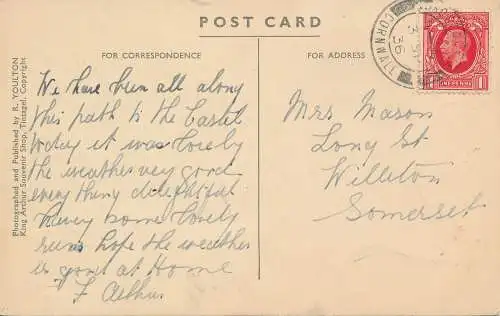 POST CARD
FOR CORRESPONDENCE
FOR ADDRESS
We have been all along
this path to the Castel
today it was lovely
the weather very good
every thing delightful
Having some lovely
runs hope the weather
is good at Home
F
Mrs Mason
Long St
Williton
Somerset
CORNWALL
36
ONE PENNY
1
Photographed and Published by R. YOULTON
King Arthur Souvenir Shop, Tintagel. Copyright